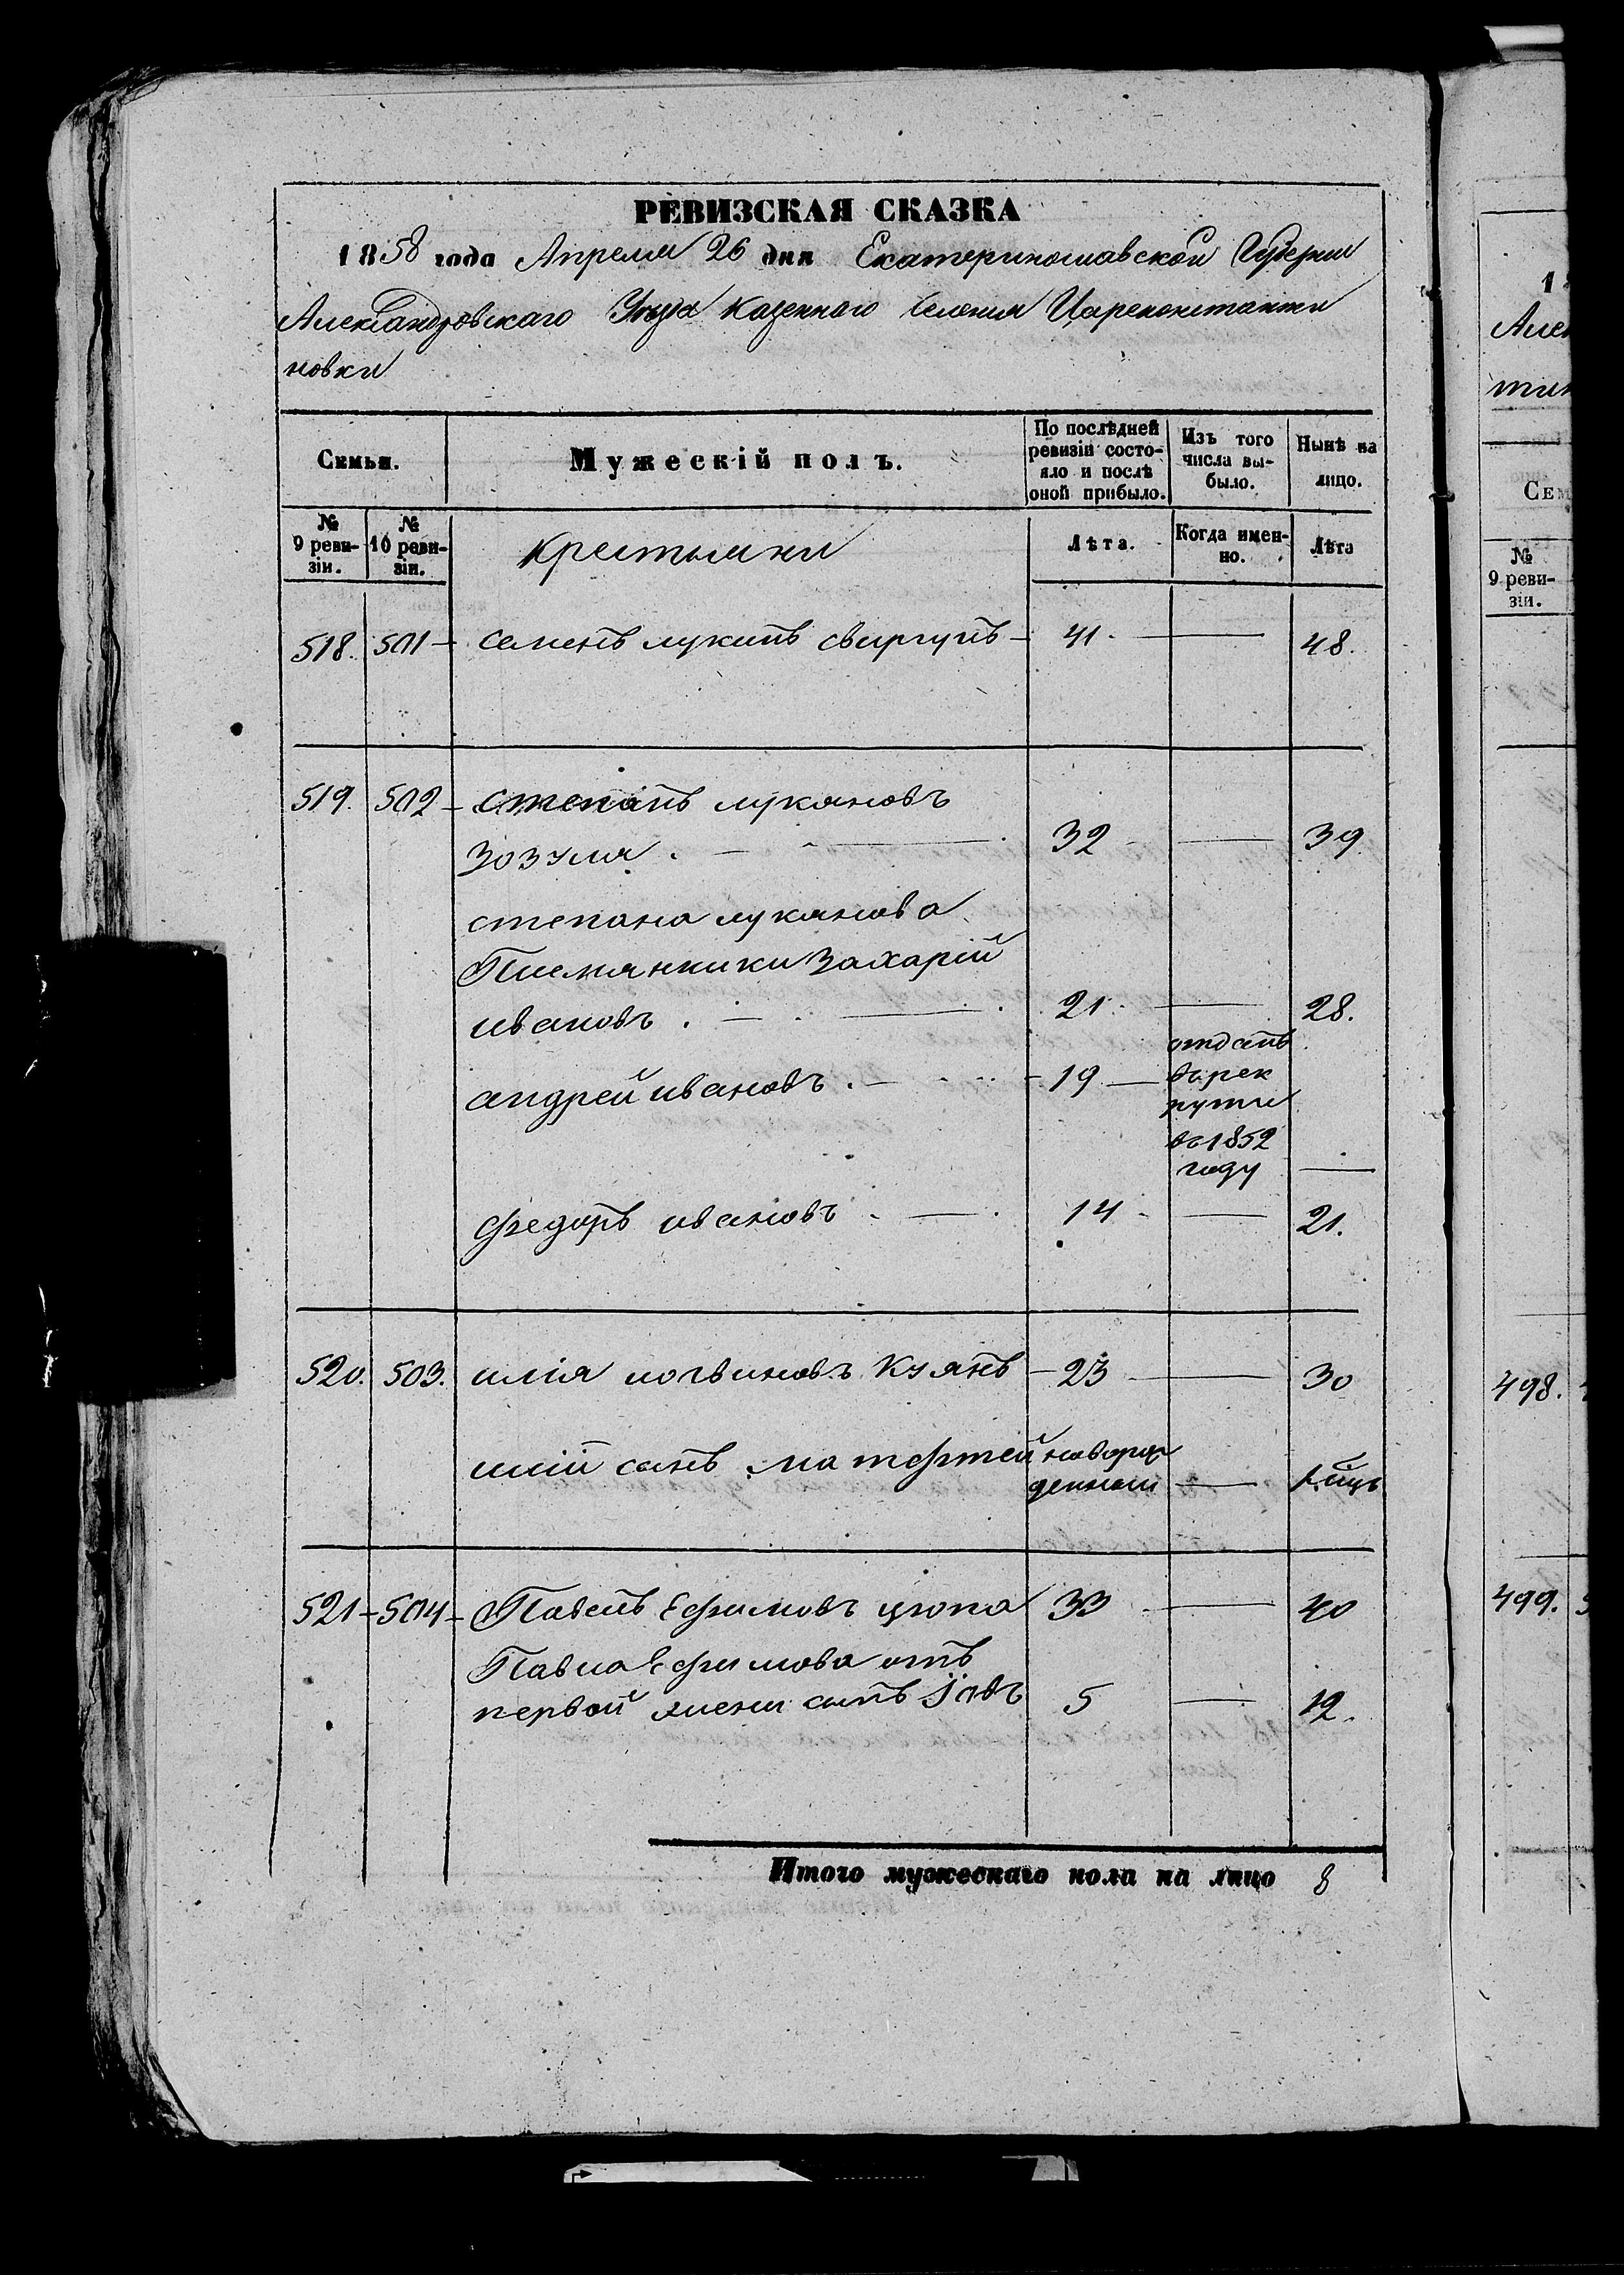 РЕВИЗСКАЯ СКАЗКА
1858 года Апреля 26 дня Екатеринославской Губернии
Александровскаго Уезда казенного Селения Цареконстанти
новки
Семьи.
Мужескій полъ.
По послѣдней ревизіи состо-
яло и послѣ
оной прибыло.
Изъ того
числа вы-
было.
Нынѣ на
лицо.
№
9 реви-
зіи.
№
10 реви-
зіи.
крестьяни
Лѣта.
Когда имен-
но.
Лѣта
518. 501 - семенъ лукинъ свиргунъ - 41 - — 48.
519. 502 - степанъ лукяновъ
зозуля . — 32 — 39
степана лукянова
Племянники Захарій
ивановъ . — 21 — 28.
андрей ивановъ . — 19 — отданъ
въ рек
рути
въ 1852
году —
федоръ ивановъ . — 14 - — 21.
520. 503. илія логвиновъ Куянъ - 23 — 30
иліи сынъ матфтей новорож
денный —
521 - 504 - Павелъ Ефимовъ цюпа 33 — 40
Павла Ефимова отъ
первой жены сынъ Іовъ 5 — 12.
Итого мужескаго пола на лицо 8
1
Алек
тин
Сем
№
9 реви-
зіи.
498.
499.